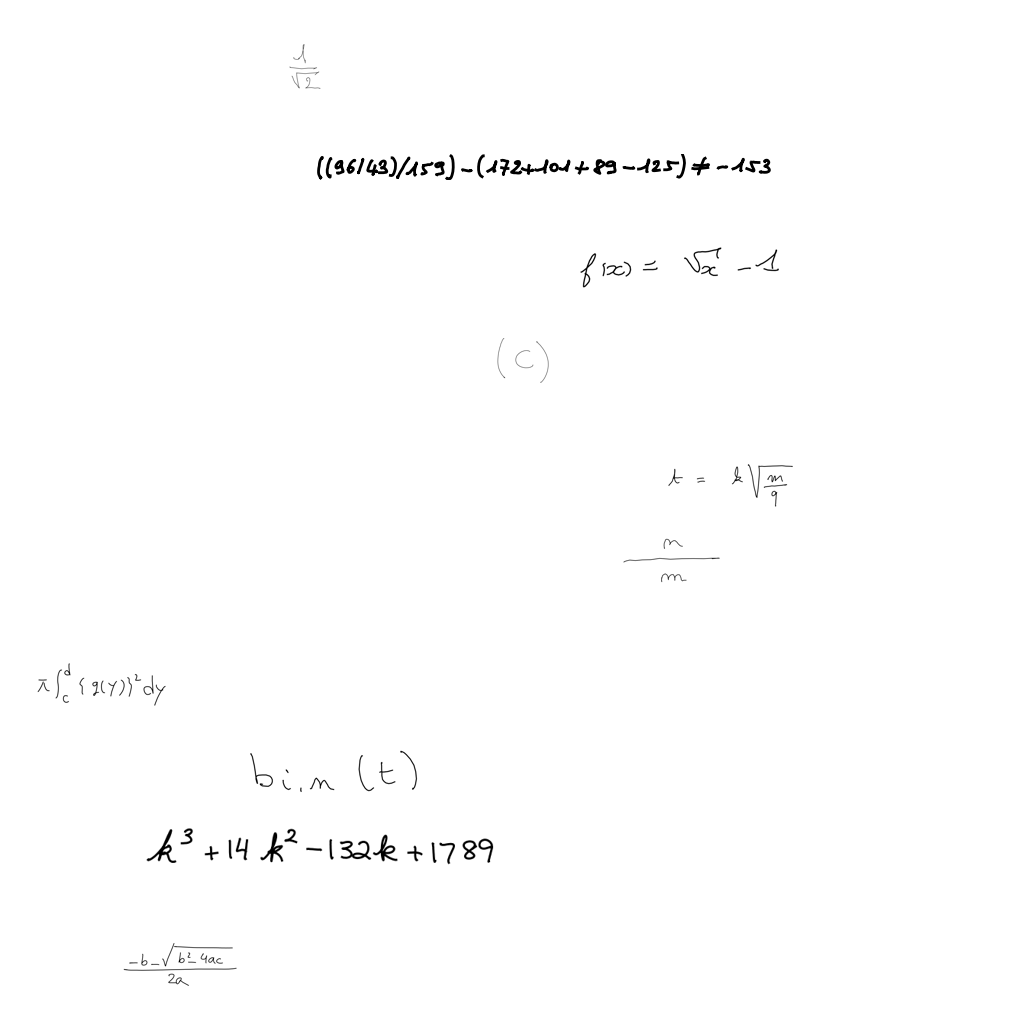 \frac{1}{\sqrt{2}}
((96/43)/159)-(172+101+89-125)≠-153
f(x) = \sqrt{x} - 1
(c)
t = k\sqrt{\frac{m}{q}}
\frac{n}{m}
\pi\int_{c}^{d}\{g(y)\}^{2}dy
bi,n(t)
k^{3}+14k^{2}-132k+1789
\frac{-b-\sqrt{b^{2}-4ac}}{2a}